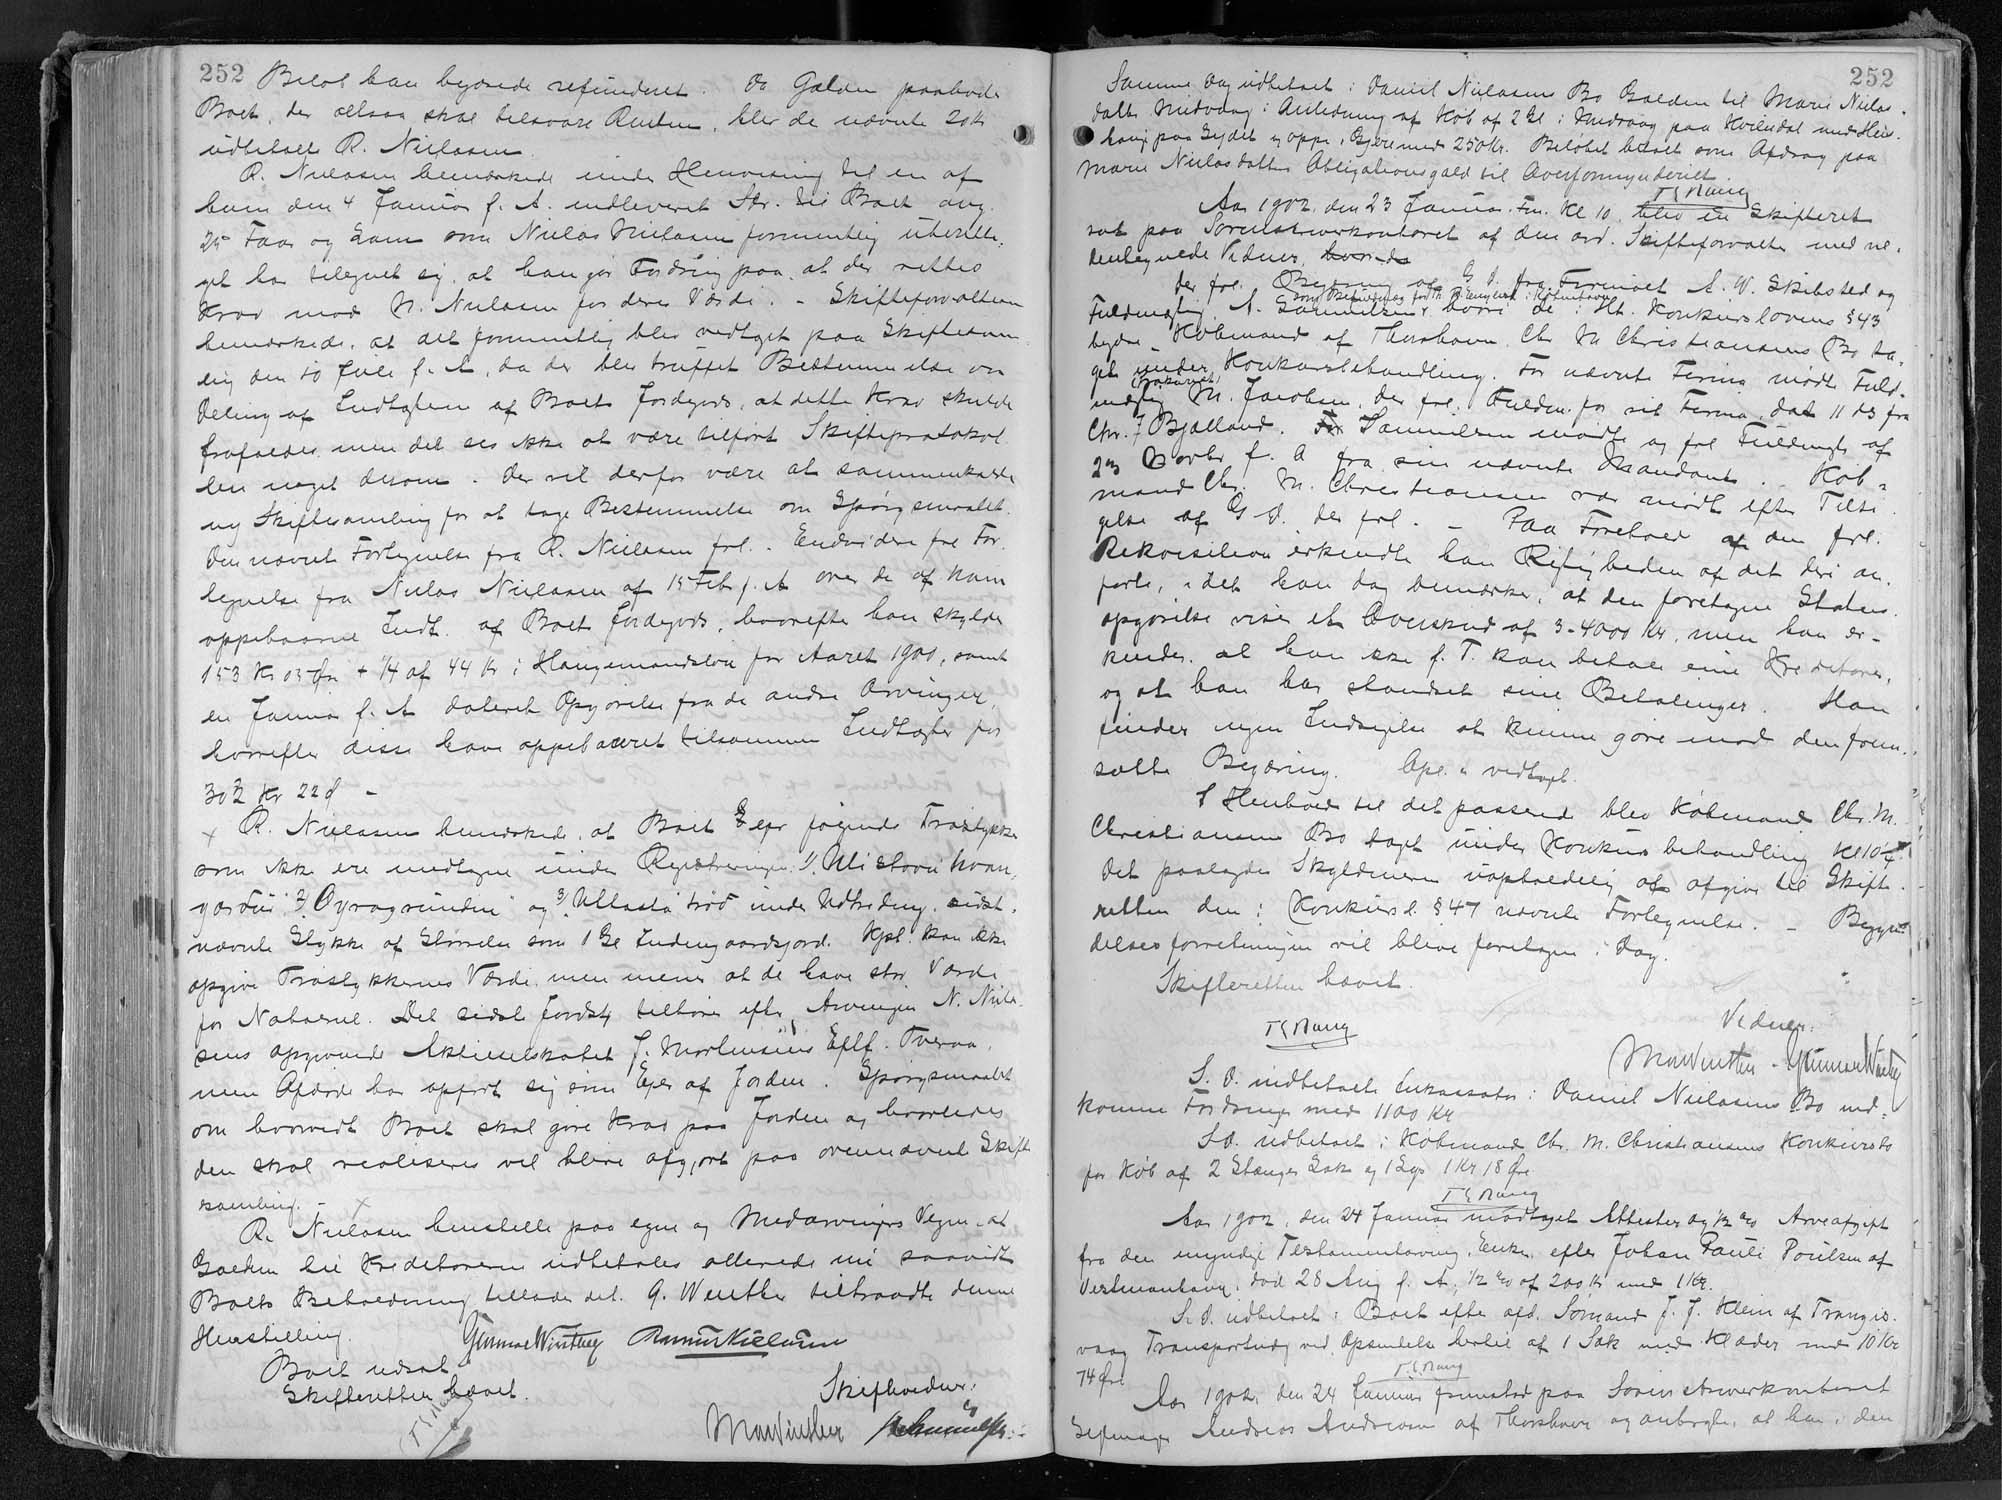 252
Beløb han begærede refunderet. Da Gælden paahvilede
Boet, der altsaa skal tilsvare Renten, blev de nævnte 20 Kr
udbetalt R. Nielasen.
R. Nielasen bemærkede under Henvisning til en af
ham den 4 Januar f. A. indleveret Skr. til Boet ang.
25 Faar og Lam som Nielas Nielasen formentlig uberetti-
get har tilegnet sig, at han gør Fordring paa, at der rettes
Krav mod N. Nielasen for deres Værdi. - Skifteforvalteren
bemærkede, at det formentlig blev vedtaget paa Skiftesam-
ling den 10 Juli f. A., da der blev truffet Bestemmelse om
Deling af Indtægten af Boets Jordegods, at dette Krav skulde
frafaldes, men det ses ikke at være tilført Skifteprotokol-
len noget derom. Der vil derfor være at sammenkalde
ny Skiftesamling for at tage Bestemmelse om Spørgsmaalet.
Den nævnte Fortegnelse fra R. Nielasen frl. - Endvidere frl For-
tegnelse fra Nielas Nielasen af 15 Feb f. A over de af ham
oppebaarne Indt. af Boets Jordegods, hvorefter han skylder
153 Kr 05 Øre + 1/4 af 44 Kr i Haugemandsløn for Aaret 1900, samt
en Januar f. A dateret Opgørelse fra de andre Arvinger,
hvorefter disse have oppebaaret tilsammen Indtægter for
302 Kr 22 Ø -
R. Nielasen bemærkede, at Boet ejer følgende Træstykker
som ikke ere medtagne under Registreringen 1) Uli i Stovu hvan-
gardur 2) Oyragrunden og 3) Ullasta trød under Udhedning, sidst-
nævnte Stykke af Størrelse som 1 Gl Indengaardsjord. Kpt. kan ikke
opgive Træstykkernes Værdi, men mener at de have stor Værdi
for Naboerne. Det sidste Jordst. tilhører efter Arvingen N. Niela-
sens opgivende Aktieselskabet J. Mortensens Eftf. Tveraa,
men Afdøde har opført sig som Ejer af Jorden. Spørgsmaalet
om hvorvidt Boet skal gøre Krav paa Jorden og hvorledes
den skal realiseres vil blive afgjort paa ovennævnte Skifte-
samling. -
R. Nielasen henstillede paa egne og Medarvingers Vegne, at
Gælden til Kreditorerne udbetales allerede nu saavidt
Boets Beholdning tillader det. G. Winther tiltraadte denne
Henstilling.
Gunnar Winther Rasmus Nielasen
Boet udsat
Skifteretten hævet.
Skiftevidner:
M Winther
252
Samme Dag udbetalt i Daniel Nielasens Bo Gælden til Marie Nielas-
datter Midvaag i Anledning af Køb af 2 Gl i Midvaag paa Kvilndal med Hus-
hang paa Gydet og oppe i Gjere med 250 Kr. Beløbet betalt som Afdrag paa
Marie Nielasdatters Obligationsgæld til Overformynderiet.
Aar 1902 den 23 Januar. Fm. Kl 10, blev en Skifteret
sat paa Sorenskriverkontoret af den ord. Skifteforvalter med ne-
dentegnede Vidner,
Der frl. Begæring af G. D. fra Firmaet A. W. Skibsted og
Fuldmægtig A. Samuelsen, hvori de i Ht. Konkurslovens § 43
begære Købmand af Thorshavn Chr M Christiansens Bo ta-
get under Konkursbehandling. For nævnte Firma mødte Fuld-
mægtig M. Jacobsen, der frl. Fuldm. for sit Firma, dat 11 ds fra
Chr. F Bjelland. Samuelsen mødte og frl Fuldmagt af
Novbr f. A fra sin nævnte Mandant. - Køb-
mand Chr. M. Christiansen var mødt efter Tilsi-
gelse af G D. der frl. - Paa Forehold af den frl.
Rekvisition erkendte han Rigtigheden af det deri an-
førte, idet han dog bemærker, at den foretagne Status-
opgørelse viser et Overskud af 3-4000 Kr, men han er-
kender, at han ikke f. T. kan betale sine Kreditorer,
og at han har standset sine Betalinger. Han
finder ingen Indsigelse at kunne gøre mod den frem-
satte Begæring. Opl. & vedtaget.
I Henhold til det passerede blev Købmand Chr. M.
Christiansens Bo taget under Konkursbehandling Kl 10 1/4.
Det paalagdes Skyldneren uopholdelig at afgive til Skifte-
retten den i Konkursl. § 47 nævnte Fortegnelse. - Begyn-
delsesforretningen vil blive foretagen i Dag.
Skifteretten hævet.
Vidner:
M Winther - Gunnar Winther
S. D. indbetalt Inkassator i Daniel Nielasens Bo ind-
komne Fordringer med 1100 Kr
S. D. udbetalt i Købmand Chr. M. Christiansens Konkursbo
for Køb af 2 Stænger Lak og 1 Lys 1 Kr 18 Øre
Aar 1902, den 24 Januar modtaget Attester og 1/2 % Arveafgift
fra den myndige Testamentarving, Enken efter Johan Pauli Poulsen af
Vestmanhavn, død 28 Aug f. A, 1/2 % af 200 Kr med 1 Kr.
S. D. udbetalt i Boet efter afd. Sømand J. J. Klein af Trangis-
vaag Transportudg. ved Opsendelse hertil af 1 Sæk med Klæder med 10 Kr
74 Øre
Aar 1902, den 24 Januar fremstod paa Sorenskriverkontoret
Andreas Andreasen af Thorshavn og anbragte, at han i den